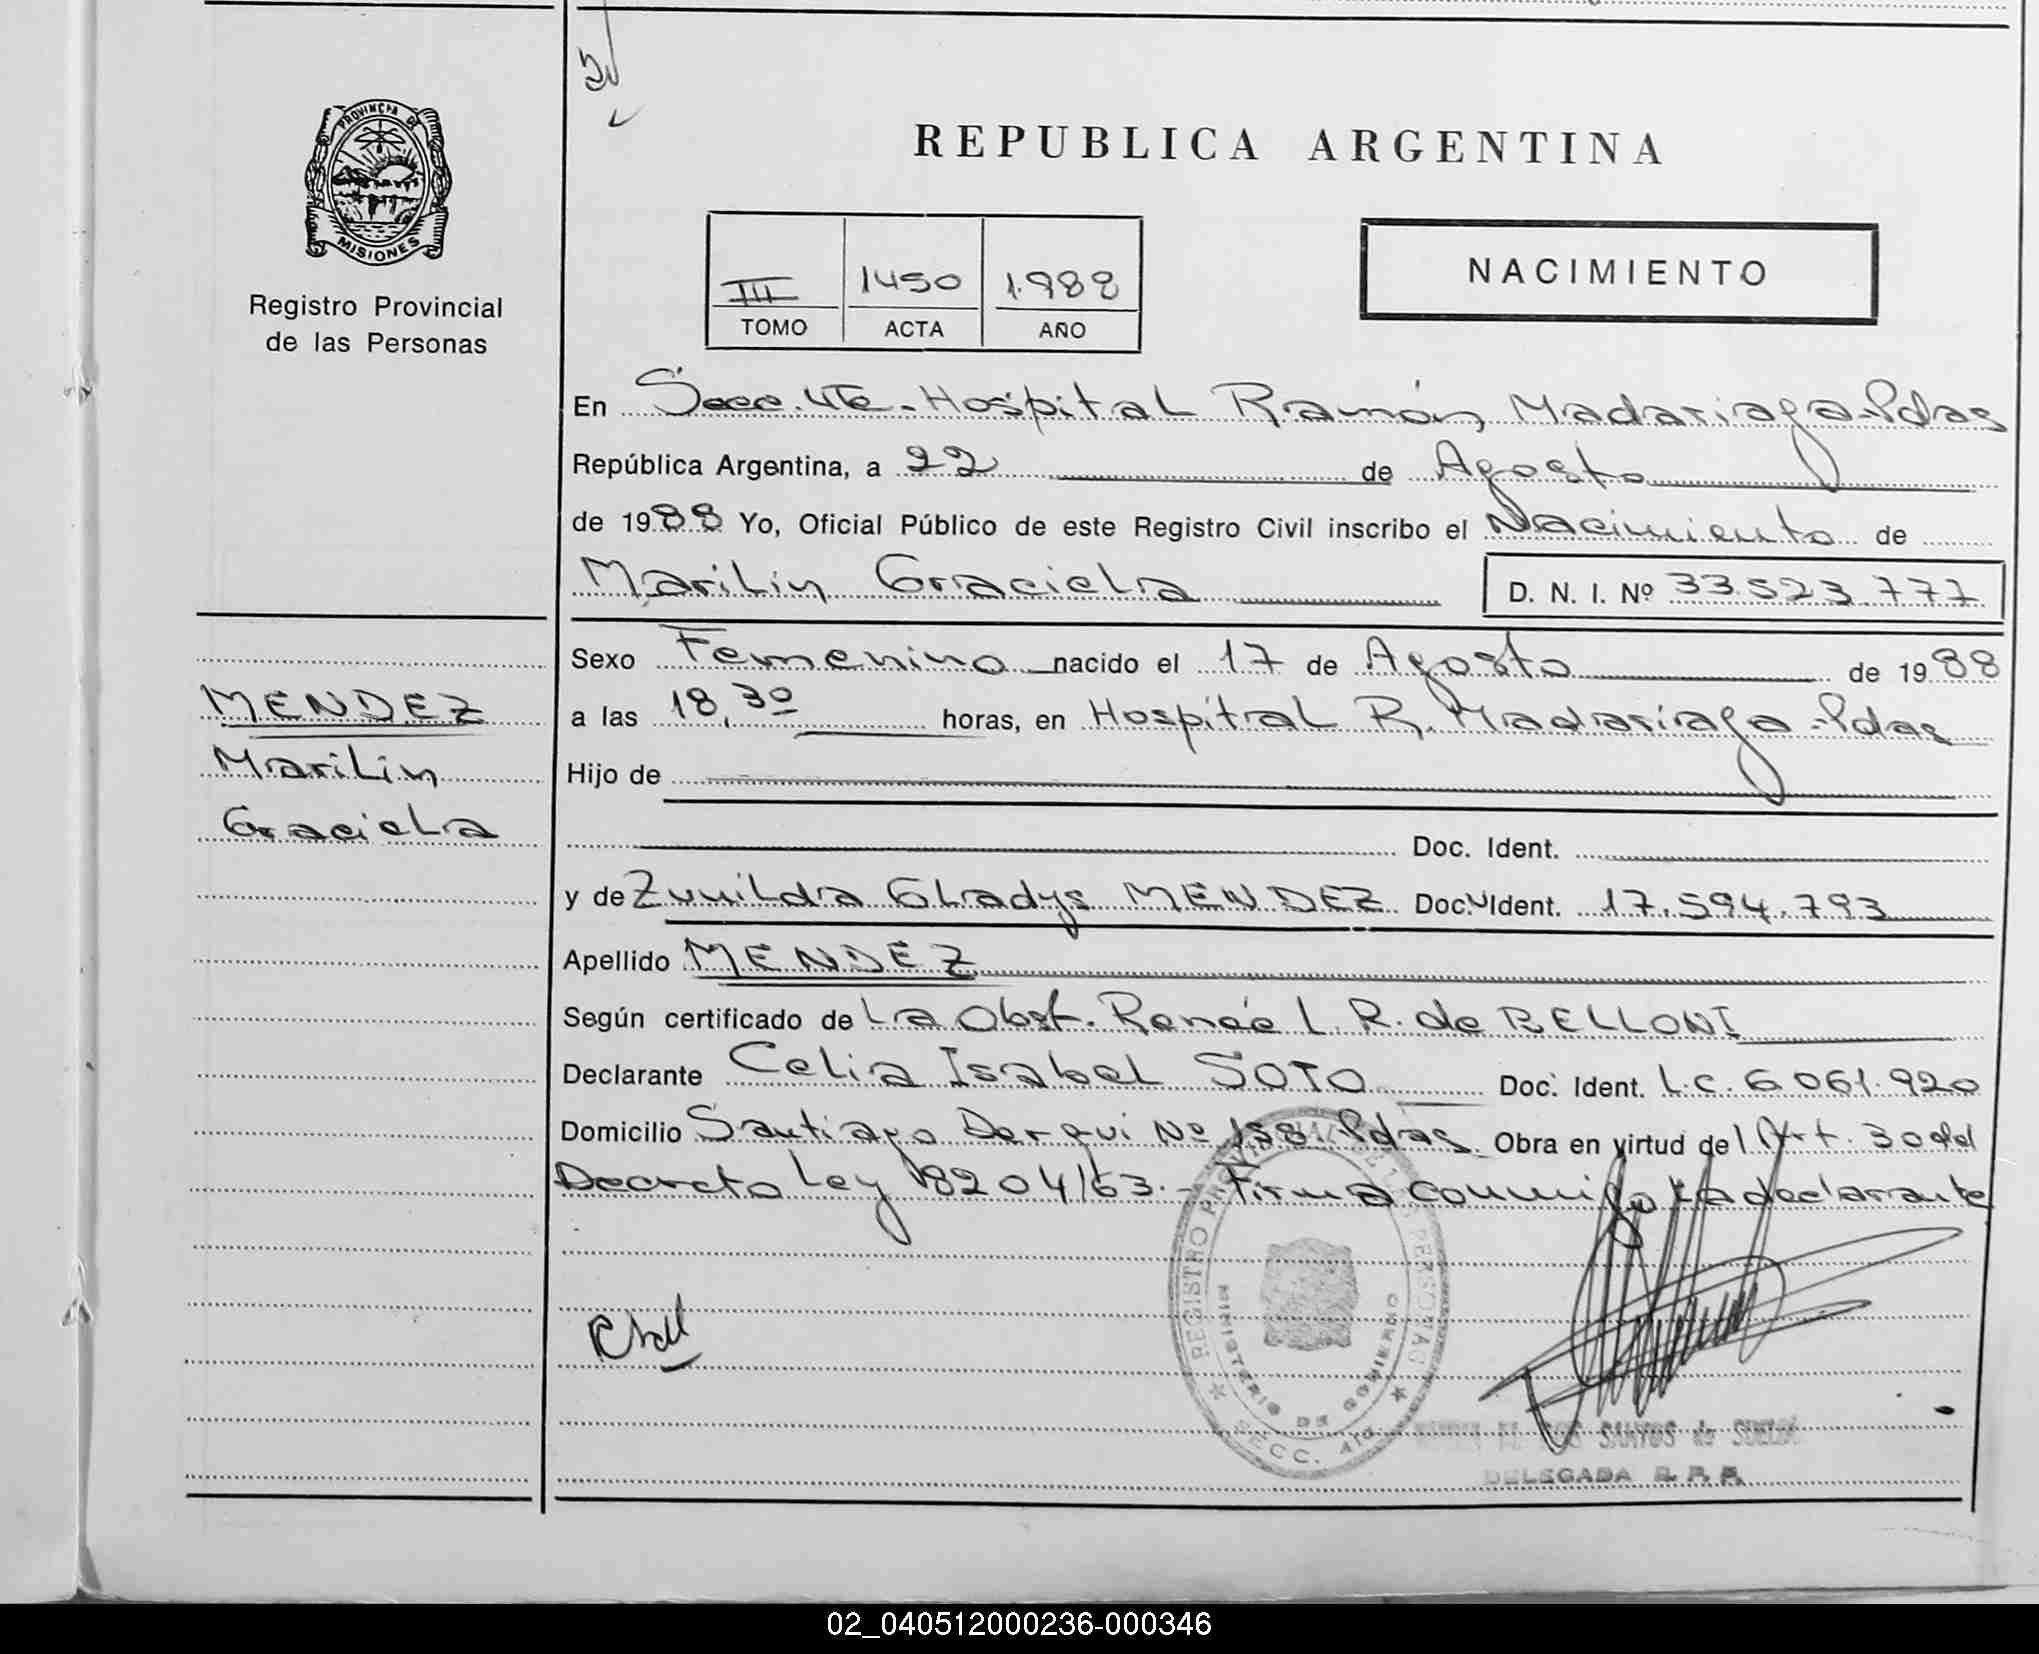 PROVINCIA DE
MISIONES
Registro Provincial
de las Personas
REPUBLICA ARGENTINA
III 1450 1.988
TOMO ACTA AÑO
NACIMIENTO
En Secc. 4ta. Hospital Ramón Madariaga-Pdas
República Argentina, a 22 de Agosto
de 1988 Yo, Oficial Público de este Registro Civil inscribo el Nacimiento de
Marilin Graciela D. N. I. Nº 33.523.777
Sexo Femenino nacido el 17 de Agosto de 1988
MENDEZ
Marilin
Graciela
a las 18,30 horas, en Hospital R. Madariaga-Pdas
Hijo de
Doc. Ident.
y de Zunilda Gladys MENDEZ Doc. Ident. 17.594.793
Apellido MENDEZ
Según certificado de La Obst. Renée L. R. de BELLONI
Declarante Celia Isabel SOTO Doc. Ident. L.C. 6061.920
Domicilio Santiago Derqui Nº 158. Pdas. Obra en virtud del Art. 30 del
Decreto Ley 18204/63.- Firma conmigo la declarante
REGISTRO PROVINCIAL DE LAS PERSONAS
MINISTERIO DE GOBIERNO
SECC. 4ta
DOS SANTOS de
DELEGADA R. P. P.
02_040512000236-000346